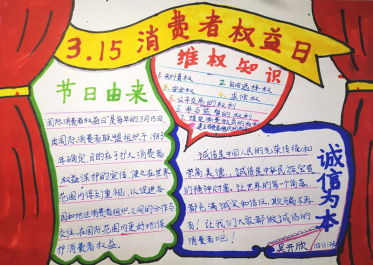 3.15消费者权益日
节日由来
国际消费者权益日是每年的3月15日
由国际消费者联盟组织于1983
年确定,目的在于扩大消费者
权益保护的宣传,使之在世界
范围内得到重视,以促进各
国和地区消费者组织之间的合作与
交往,在国际范围内更好地保
护消费者权益。
维权知识
1.知情权
2.自主选择权
3.安全权
4.求偿权
5.公平交易的权利
诚信是中国人民的光荣传统和
崇高美德,诚信是中华民族宝贵
的精神财富,让世界的每一个角落,
都充满诚实和信任,欺骗不再
有!让我们大家都做诚信的
消费者吧!
诚信为本